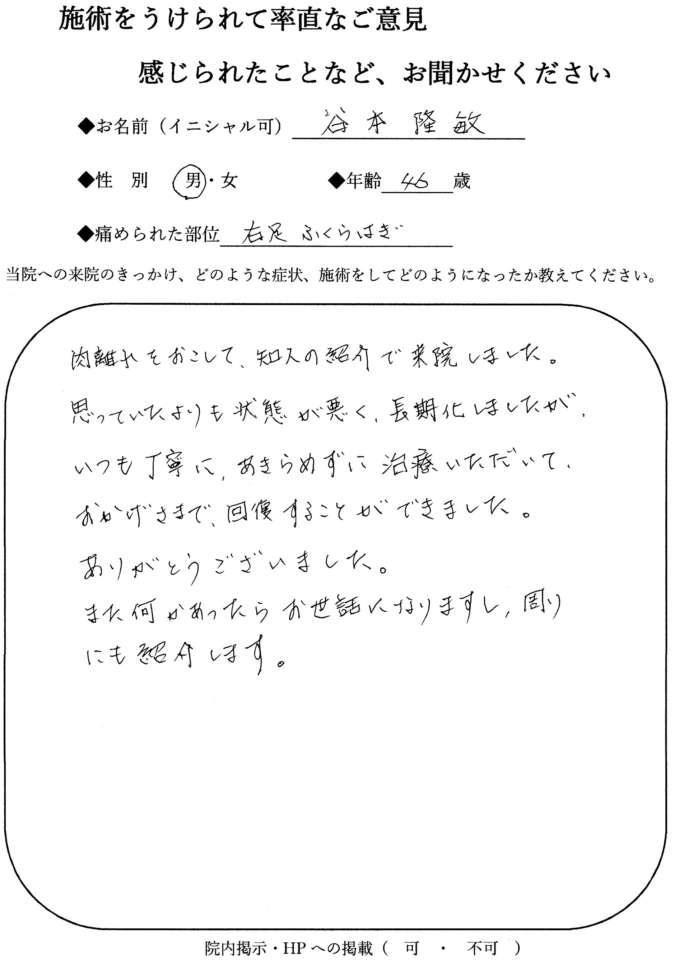 施術をうけられて率直なご意見
感じられたことなど、お聞かせください
◆お名前（イニシャル可） 谷本 隆敏
◆性　別　男・女　◆年齢 46 歳
◆痛められた部位 右足 ふくらはぎ
当院への来院のきっかけ、どのような症状、施術をしてどのようになったか教えてください。
肉離れをおこして、知人の紹介で来院しました。
思っていたよりも状態が悪く、長期化しましたが、
いつも丁寧に、あきらめずに治療いただいて、
おかげさまで、回復することができました。
ありがとうございました。
また何かあったらお世話になりますし、周り
にも紹介します。
院内掲示・HPへの掲載（　可　・　不可　）